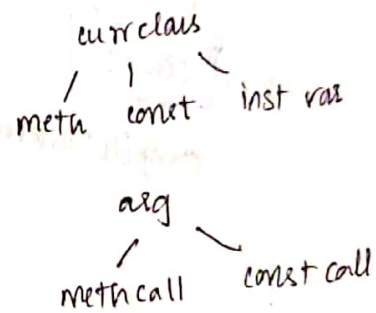 curr class
meth const inst var
arg
meth call const call